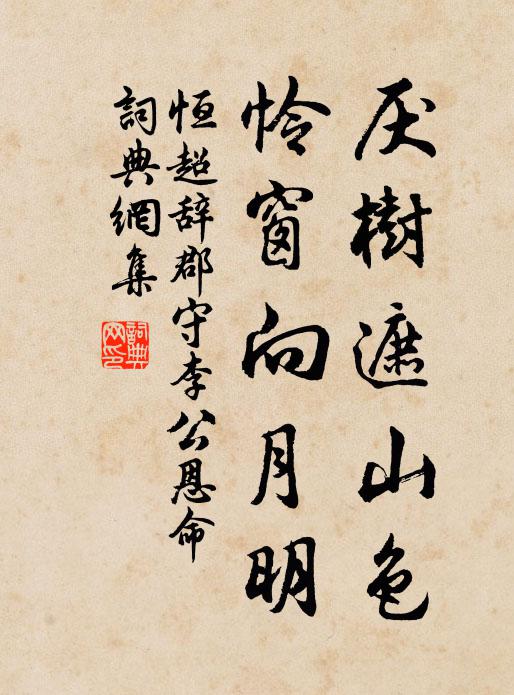 厌樹遮山色
怜窗向月明
恒超辞郡守李公恩命
詞典網集
詞典網印